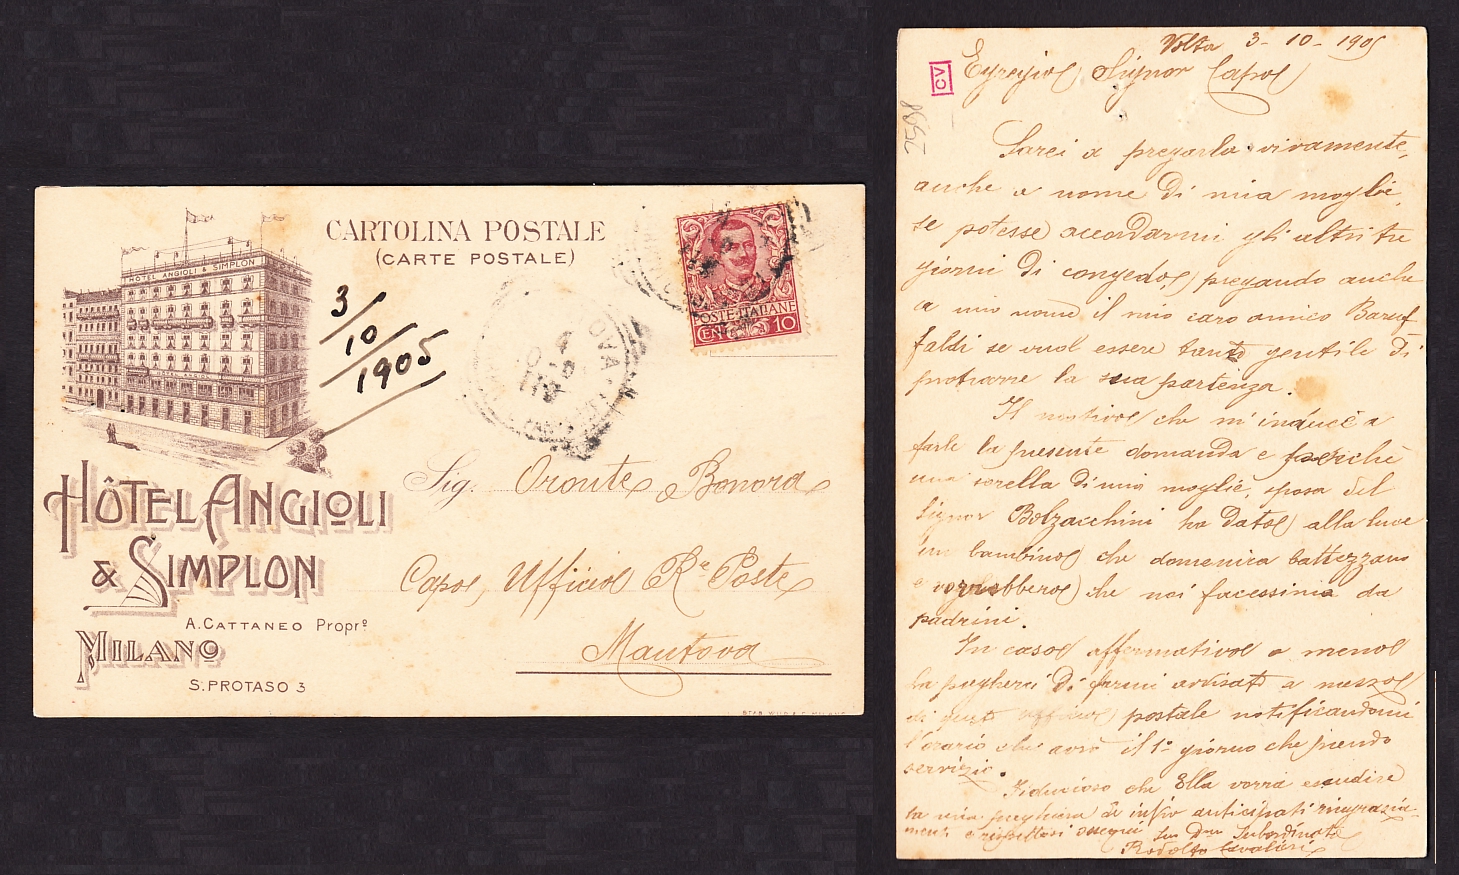 CARTOLINA POSTALE
(CARTE POSTALE)
HOTEL ANGIOLI & SIMPLON
3/10/1905
POSTE ITALIANE
CENT. 10
HÔTEL ANGIOLI
& SIMPLON
A. CATTANEO Propr.º
MILANO
S. PROTASO 3
Sig. Oronte Bonora
Capo, Ufficio Re Poste
Mantova
Volta 3-10-1905
CV
Egregio Signor Capo
2598
Sarei a pregarla vivamente,
anche a nome di mia moglie,
se potesse accordarmi gli altri tre
giorni di congedo, pregando anche
a mio nome il mio caro amico Baruf
faldi se vuol essere tanto gentile di
protrarre la sua partenza.
Il motivo che m'induce a
farle la presente domanda e perchè
una sorella di mia moglie, sposa del
Signor Bolzacchini ha dato alla luce
un bambino che domenica battezzano
e vorrebbero che noi facessimo da
padrini.
In caso affermativo o meno
la pregherei di farmi avvisato a mezzo
di quest' ufficio postale notificandomi
l'orario che avrò il 1º giorno che prendo
servizio.
Fiducioso che Ella vorrà esaudire
la mia preghiera Le invio anticipati ringrazia-
menti e rispettosi ossequi Suo Dmo Subordinato
Rodolfo Cavalieri